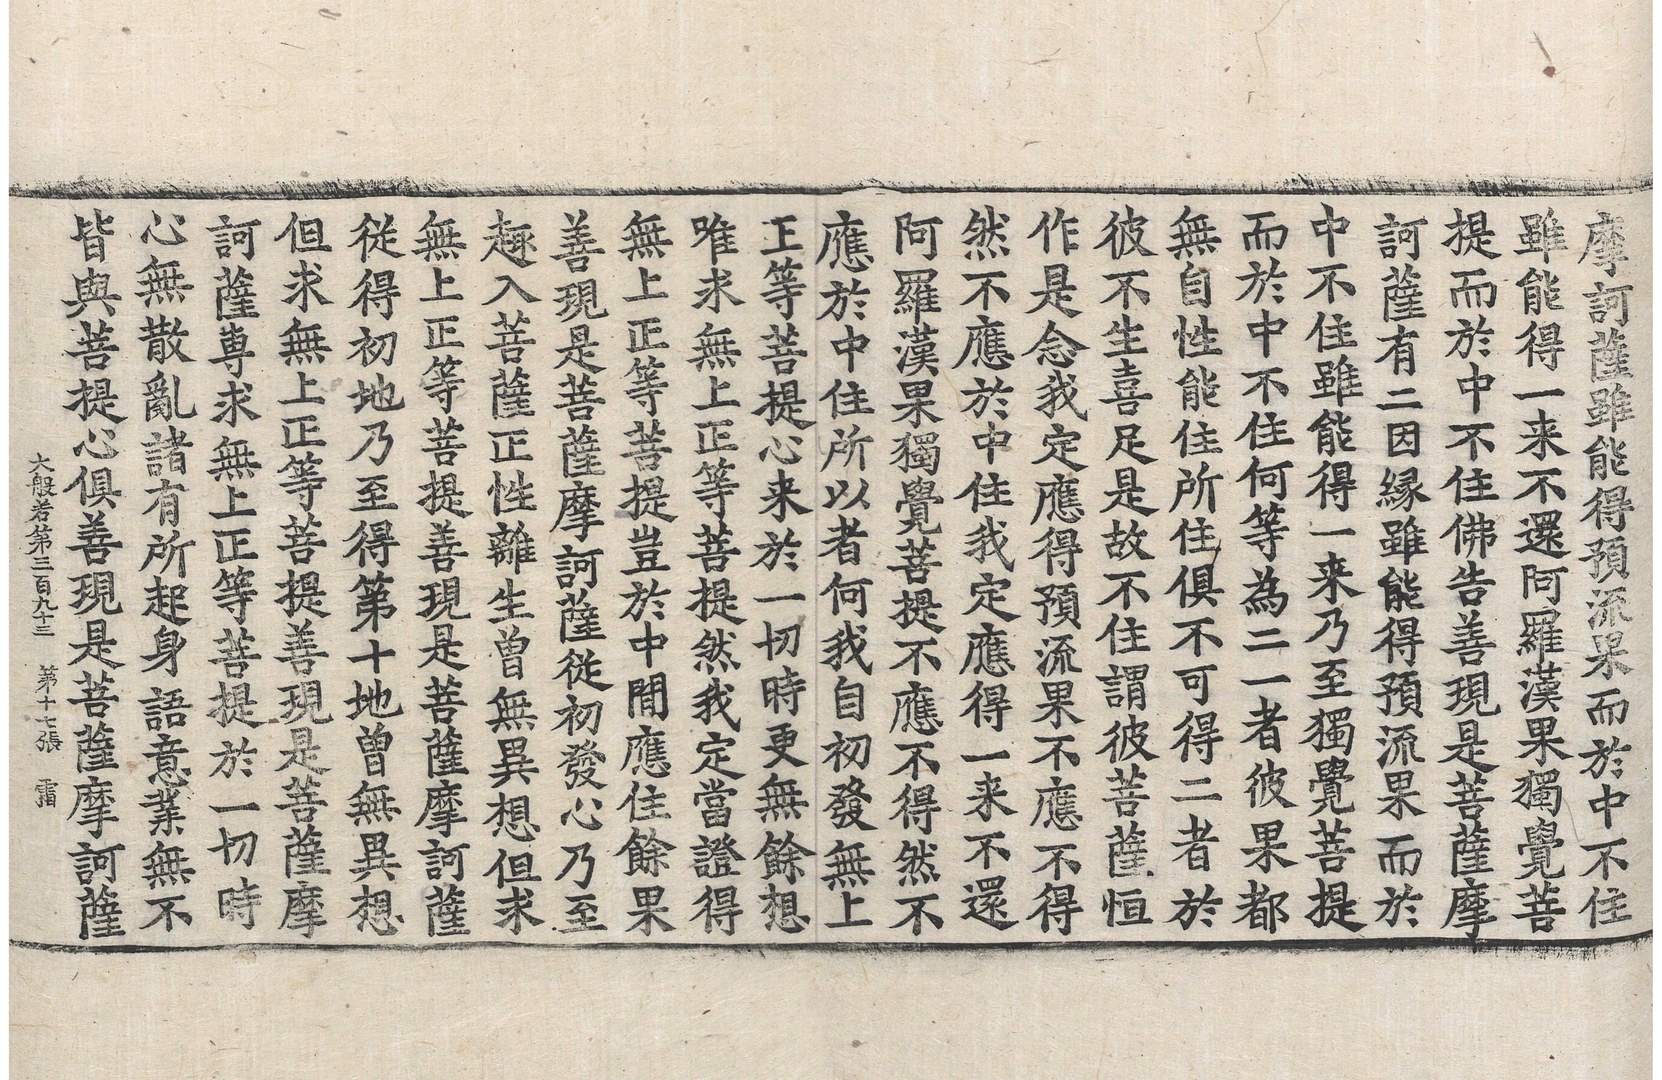 摩訶薩雖能得預流果而於中不住
雖能得一来不還阿羅漢果獨覺菩
提而於中不住佛告善現是菩薩摩
訶薩有二因緣雖能得預流果而於
中不住雖能得一来乃至獨覺菩提
而於中不住何等為二一者彼果都
無自性能住所住俱不可得二者於
彼不生喜足是故不住謂彼菩薩恒
作是念我定應得預流果不應不得
然不應於中住我定應得一来不還
阿羅漢果獨覺菩提不應不得然不
應於中住所以者何我自初發無上
正等菩提心来於一切時更無餘想
唯求無上正等菩提然我定當證得
無上正等菩提豈於中間應住餘果
善現是菩薩摩訶薩從初發心乃至
趣入菩薩正性離生曾無異想但求
無上正等菩提善現是菩薩摩訶薩
從得初地乃至得第十地曾無異想
但求無上正等菩提善現是菩薩摩
訶薩專求無上正等菩提於一切時
心無散亂諸有所起身語意業無不
皆與菩提心俱善現是菩薩摩訶薩
大般若第三百九十三 第十七張 霜